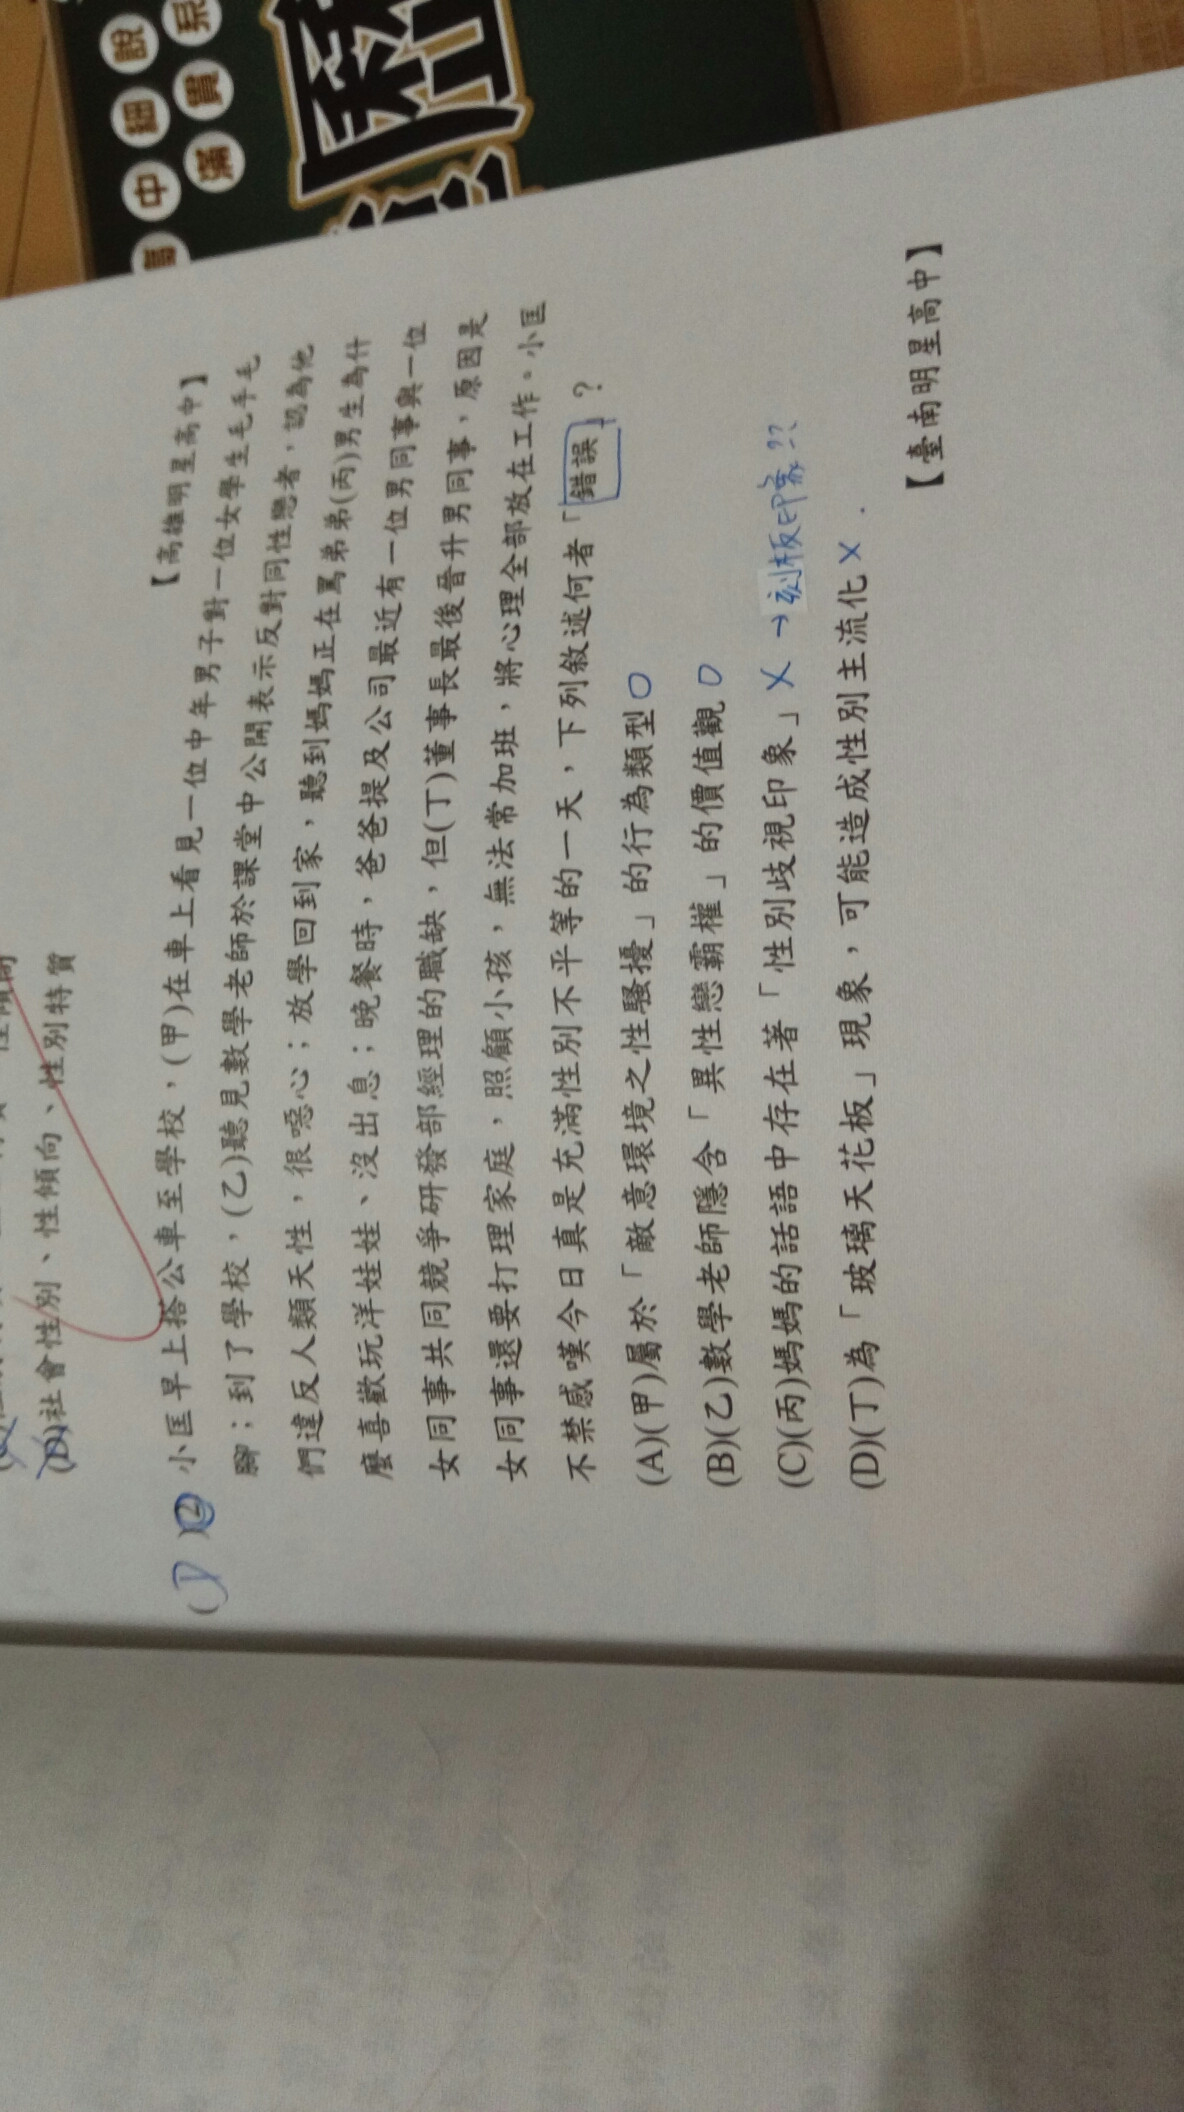 說
細
中
貫
滿
(D)社會性別、性傾向、性別特質
【高雄明星高中】
(D) 2 小匡早上搭公車至學校，(甲)在車上看見一位中年男子對一位女學生毛手毛
腳；到了學校，(乙)聽見數學老師於課堂中公開表示反對同性戀者，認為他
們違反人類天性，很噁心；放學回到家，聽到媽媽正在罵弟弟(丙)男生為什
麼喜歡玩洋娃娃、沒出息；晚餐時，爸爸提及公司最近有一位男同事與一位
女同事共同競爭研發部經理的職缺，但(丁)董事長最後晉升男同事，原因是
女同事還要打理家庭，照顧小孩，無法常加班，將心理全部放在工作。小匡
不禁感嘆今日真是充滿性別不平等的一天，下列敘述何者「錯誤」？
(A)(甲)屬於「敵意環境之性騷擾」的行為類型 O
(B)(乙)數學老師隱含「異性戀霸權」的價值觀 O
(C)(丙)媽媽的話語中存在著「性別歧視印象」 X → 刻板印象??
(D)(丁)為「玻璃天花板」現象，可能造成性別主流化 X.
【臺南明星高中】